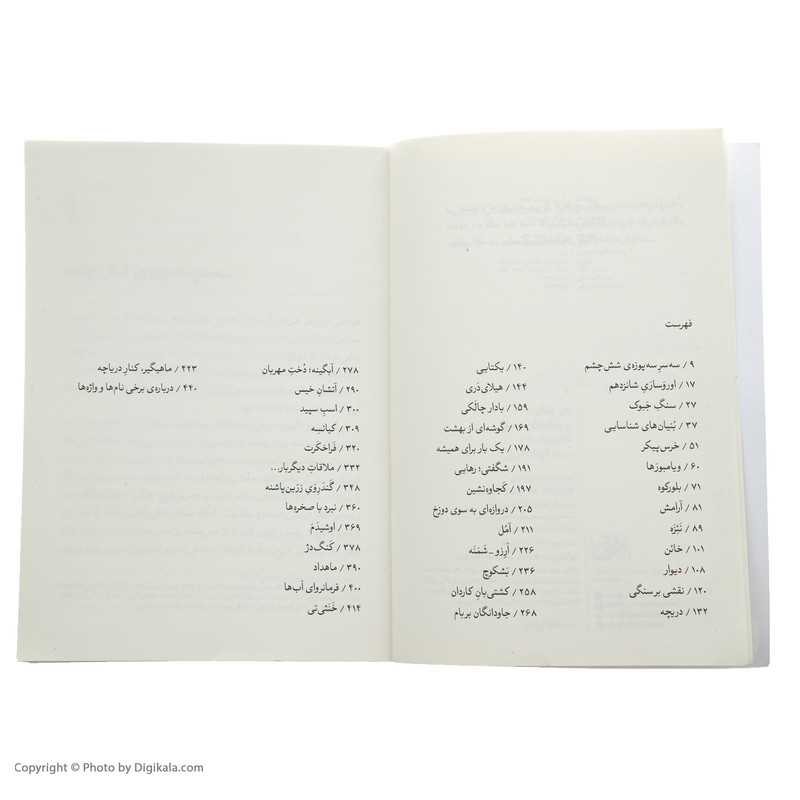 فهرست
۹ / سه‌سرِ سه‌پوزه‌ی شش‌چشم
۱۷ / اوروَسارَیِ شانزدهم
۲۷ / سنگِ جَبوک
۳۷ / بُنیان‌های شناسایی
۵۱ / خرس‌پیکر
۶۰ / ویامبورَها
۷۱ / بلورکوه
۸۱ / آرامش
۸۹ / نَبَرَه
۱۰۱ / خائن
۱۰۸ / دیوار
۱۲۰ / نقشی بر سنگی
۱۳۲ / دریچه
۱۴۰ / یکتایی
۱۴۴ / هیلای‌دَری
۱۵۹ / بادار چالَکی
۱۶۹ / گوشه‌ای از بهشت
۱۷۸ / یک بار برای همیشه
۱۹۱ / شگفتی؛ رهایی
۱۹۷ / کَجاوه‌نشین
۲۰۵ / دروازه‌ای به سوی دوزخ
۲۱۱ / آمُل
۲۲۶ / اَرِزو ـ شَمَنَه
۲۳۶ / بَشکوچ
۲۵۸ / کشتی‌بانِ کاردان
۲۶۸ / جاودانگان بر بام
۲۷۸ / آبگینه؛ دُختِ مهربان
۲۹۰ / آتشانِ خیس
۳۰۰ / اسبِ سپید
۳۰۹ / کیانسِه
۳۲۰ / فَراخکَرت
۳۳۲ / ملاقاتِ دیگربار...
۳۴۸ / گَندَرِوَیِ زرّین‌پاشنه
۳۶۰ / نبرد با صخره‌ها
۳۶۹ / اوشیدَم
۳۷۸ / کَنگ‌دژ
۳۹۰ / ماهداد
۴۰۰ / فرمانروای آب‌ها
۴۱۴ / خَنَثی‌تی
۴۲۳ / ماهیگیر، کنارِ دریاچه
۴۴۰ / درباره‌ی برخی نام‌ها و واژه‌ها
Copyright © Photo by Digikala.com